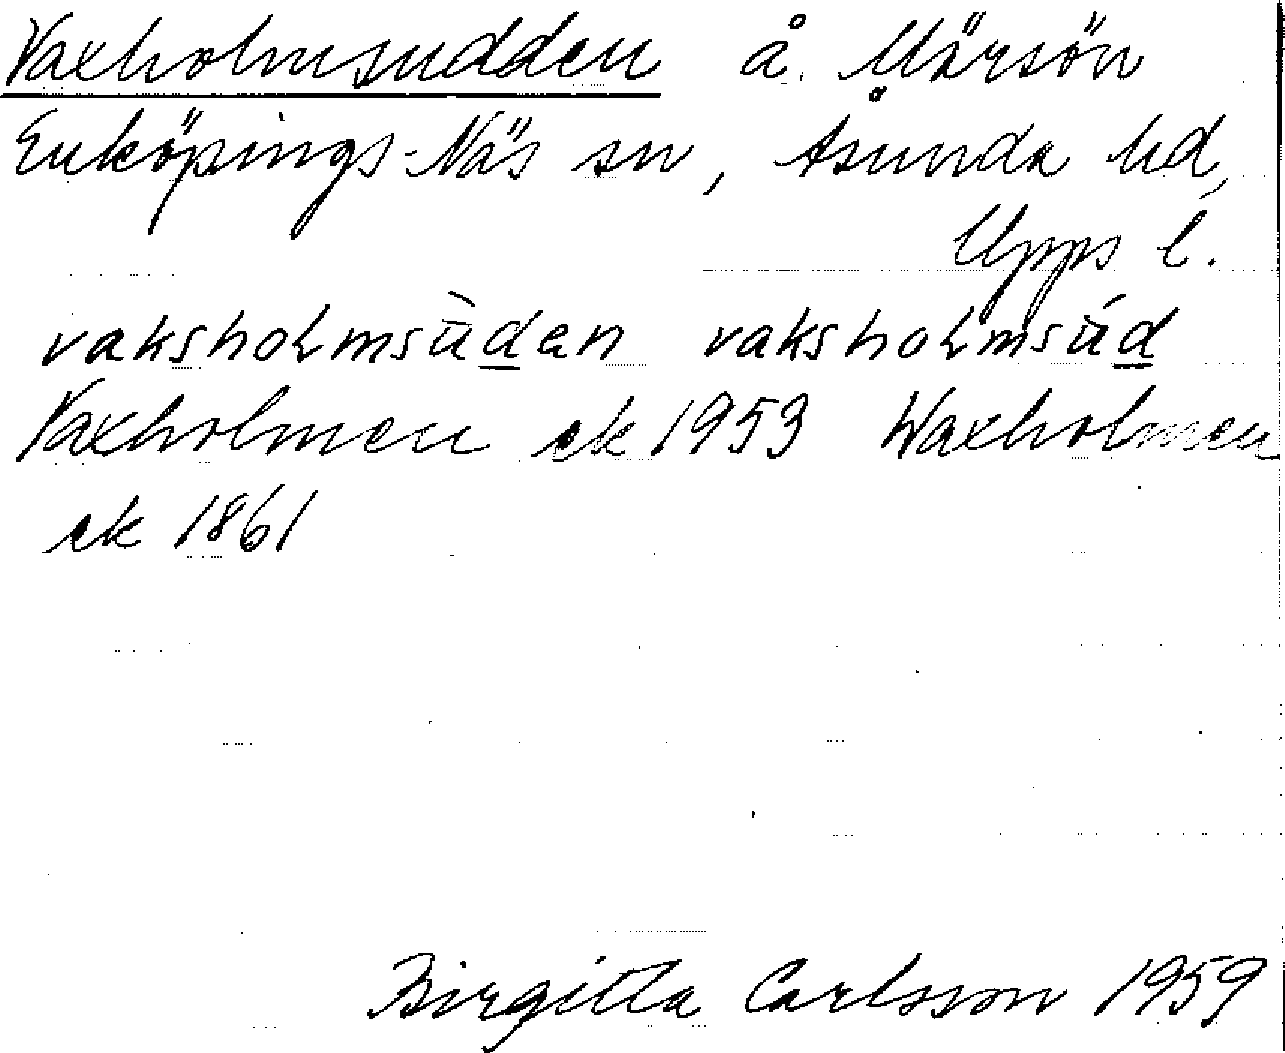 Vaxholmsudden å. Märsön
Enköpings-Näs sn, Åsunda hd,
Upps l.
vaksholmsùden vaksholmsúd
Vaxholmen ek 1953 Waxholmen
ek 1861
Birgitta Carlsson 1959